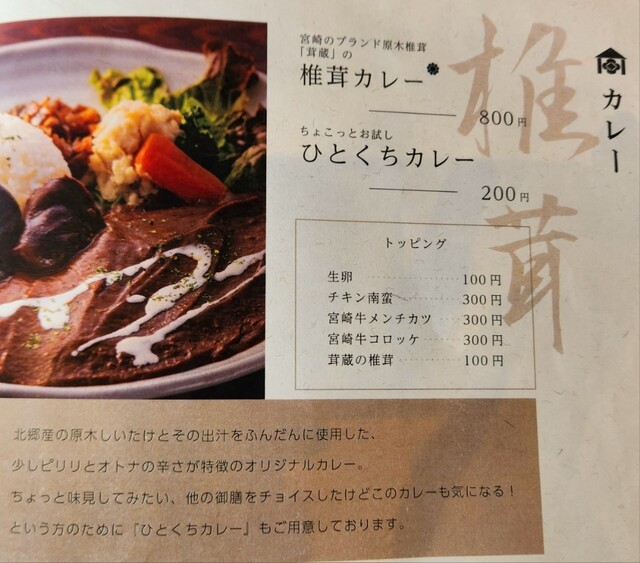 カレー
椎茸
宮崎のブランド原木椎茸
「茸蔵」の
椎茸カレー
800円
ちょこっとお試し
ひとくちカレー
200円
トッピング
生卵 100円
チキン南蛮 300円
宮崎牛メンチカツ 300円
宮崎牛コロッケ 300円
茸蔵の椎茸 100円
北郷産の原木しいたけとその出汁をふんだんに使用した、
少しピリリとオトナの辛さが特徴のオリジナルカレー。
ちょっと味見してみたい、他の御膳をチョイスしたけどこのカレーも気になる！
という方のために「ひとくちカレー」もご用意しております。